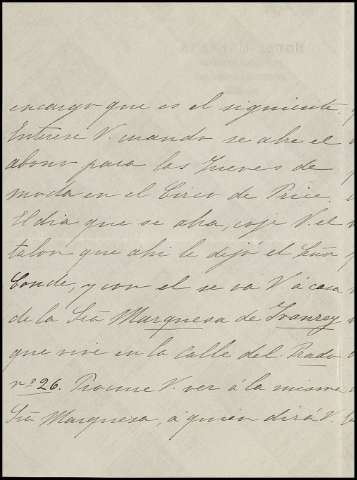 encargo que es el siguiente.
Entere V. cuando se abre el
abono para los Jueves de
moda en el Circo de Price.
El dia que se abra, coje V. el
talon que ahi le dejó el Señor
Conde, y con el se va V. á casa
de la Sra Marquesa de Ivanrey
que vive en la Calle del Prado
nº 26. Procure V. ver á la misma
Sra Marquesa, a quien dirá V.